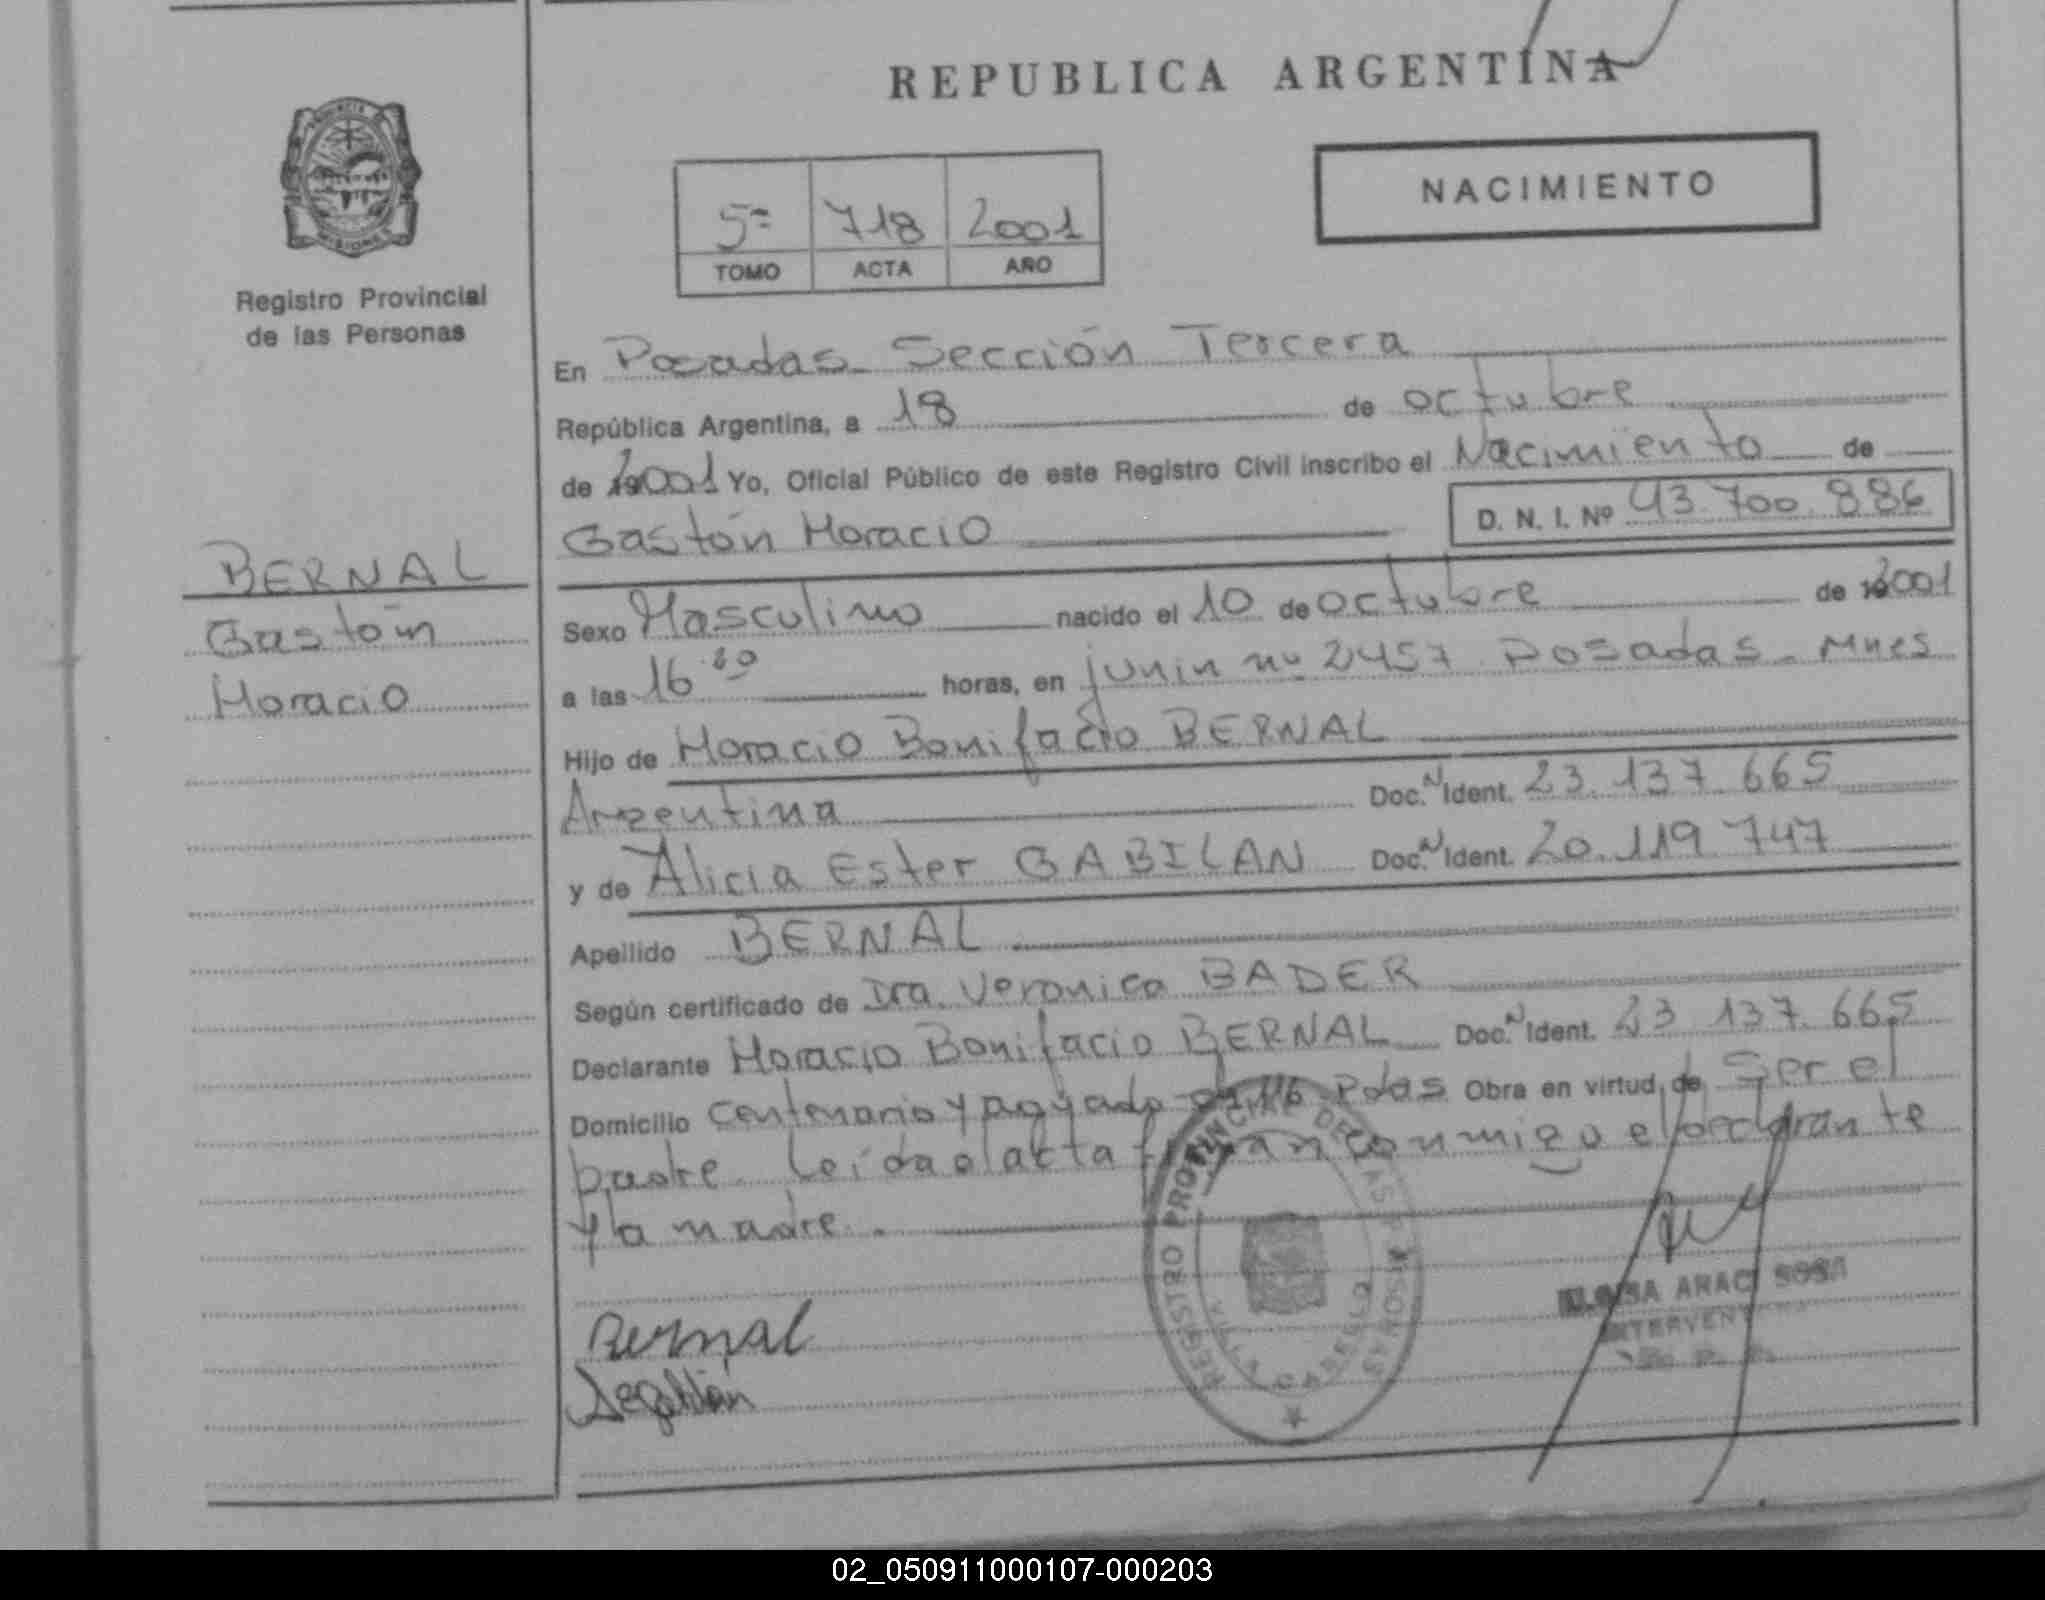 REPUBLICA ARGENTINA
PROVINCIA
MISIONES
Registro Provincial
de las Personas
5= 718 2001
TOMO ACTA AÑO
NACIMIENTO
En Posadas Sección Tercera
República Argentina, a 18 de octubre
de 2001 Yo, Oficial Público de este Registro Civil inscribo el Nacimiento de
Gastón Horacio D. N. I. Nº 43.700.886
BERNAL
Gastón
Horacio
Sexo Masculino nacido el 10 de octubre de 2001
a las 16 horas, en junin nº 2457 Posadas - Mnes
Hijo de Horacio Bonifacio BERNAL
Argentina Doc. N Ident. 23.137.665
y de Alicia Ester GABILAN Doc. N Ident. 20.119.747
Apellido BERNAL
Según certificado de Dra. Veronica BADER
Declarante Horacio Bonifacio BERNAL Doc. N Ident. 23 137.665
Domicilio Centenario y aguado Pdas Obra en virtud de Ser el
padre. Leída el acta firman conmigo el declarante
y la madre.
Bernal
REGISTRO PROVINCIAL DE LAS PERSONAS
VILLA CABELLO
ARACI SOSA